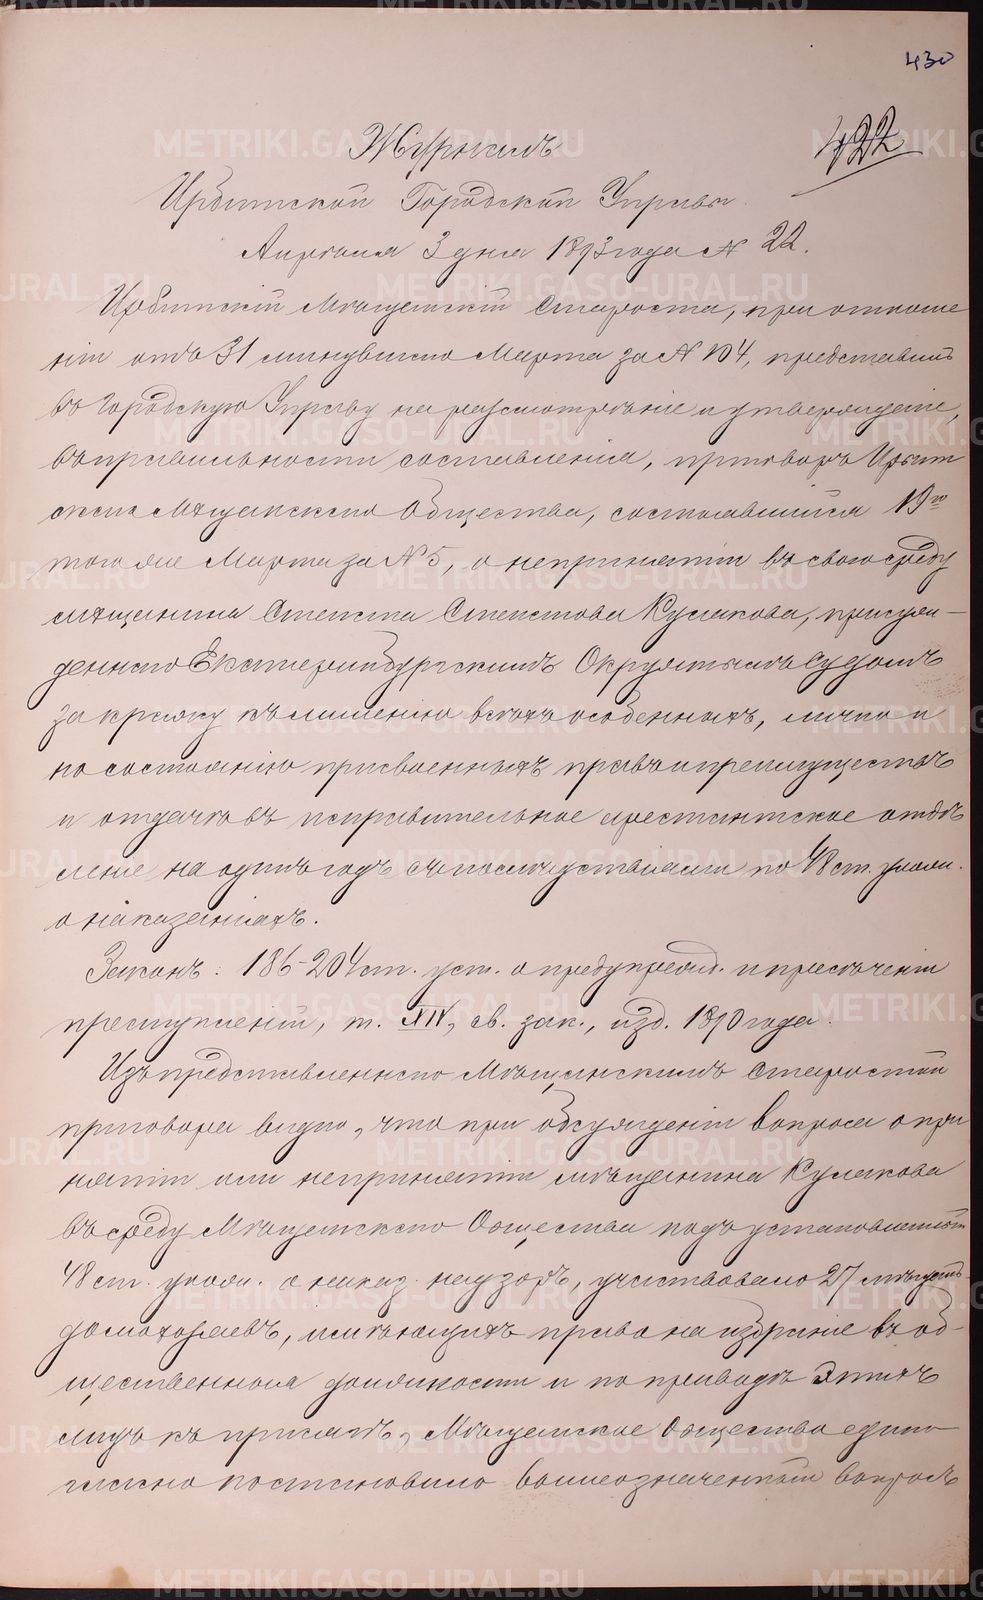 430
422
Журналъ
Ирбитской Городской Управы
Апрѣля 3 дня 1893 года № 22.
Ирбитскій Мѣщанскій Староста, при отноше
ніи отъ 31 минувшаго Марта за № 104, представилъ
въ Городскую Управу на разсмотрѣніе и утвержденіе,
въ правильности составленія, приговоръ Ирбит
скаго Мѣщанскаго Общества, состоявшійся 19го
того же Марта за № 5, о непринятіи въ свою среду
мѣщанина Степана Степанова Кулакова, присуж-
деннаго Екатеринбургскимъ Окружнымъ Судомъ
за кражу къ лишенію всѣхъ особенныхъ, лично и
по состоянію присвоенныхъ правъ и преимуществъ
и отдачѣ въ исправительное арестантское отдѣ
леніе на одинъ годъ съ послѣдствіями по 48 ст. улож.
о наказаніяхъ.
Законъ: 186-204 ст. уст. о предупрежд. и пресѣченіи
преступленій, т. XIV, св. зак., изд. 1890 года.
Изъ представленнаго Мѣщанскимъ Старостой
приговора видно, что при обсужденіи вопроса о при
нятіи или непринятіи мѣщанина Кулакова
въ среду Мѣщанскаго Общества подъ установленный
48 ст. улож. о наказ. надзоръ, участвовало 27 мѣщанъ-
домохозяевъ, имѣющихъ право на избраніе въ об-
щественныя должности и по приводѣ этихъ
лицъ къ присягѣ, Мѣщанское Общество едино
гласно постановило вышеозначенный вопросъ